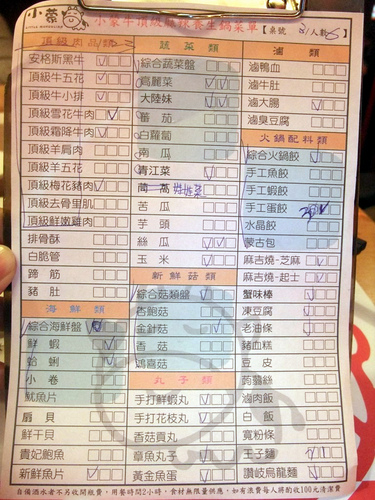 小蒙
小蒙牛頂級麻辣養生鍋菜單【桌號 /人數 】
頂級肉品類
安格斯黑牛
頂級牛五花
頂級牛小排
頂級雪花牛肉
頂級霜降牛肉
頂級羊肩肉
頂級羊五花
頂級梅花豬肉
頂級去骨里肌
頂級鮮嫩雞肉
排骨酥
白脆管
蹄筋
豬肚
海鮮類
綜合海鮮盤
鮮蝦
蛤蜊
小卷
魷魚片
扇貝
鮮干貝
貴妃鮑魚
新鮮魚片
蔬菜類
綜合蔬菜盤
高麗菜
大陸妹
蕃茄
白蘿蔔
南瓜
青江菜
茼蒿
苦瓜
芋頭
絲瓜
玉米
新鮮菇類
綜合菇類盤
杏鮑菇
金針菇
香菇
鴻喜菇
丸子類
手打鮮蝦丸
手打花枝丸
香菇貢丸
章魚丸子
黃金魚蛋
滷類
滷鴨血
滷牛肚
滷大腸
滷臭豆腐
火鍋配料類
綜合火鍋餃
手工魚餃
手工蝦餃
手工蛋餃
水晶餃
蒙古包
麻吉燒-芝麻
麻吉燒-起士
蟹味棒
凍豆腐
老油條
豬血糕
豆皮
蒟蒻絲
滷肉飯
白飯
寬粉條
王子麵
讚岐烏龍麵
自備酒水者不另收開瓶費,用餐時間2小時,食材無限量供應,如有浪費每人將酌收100元清潔費